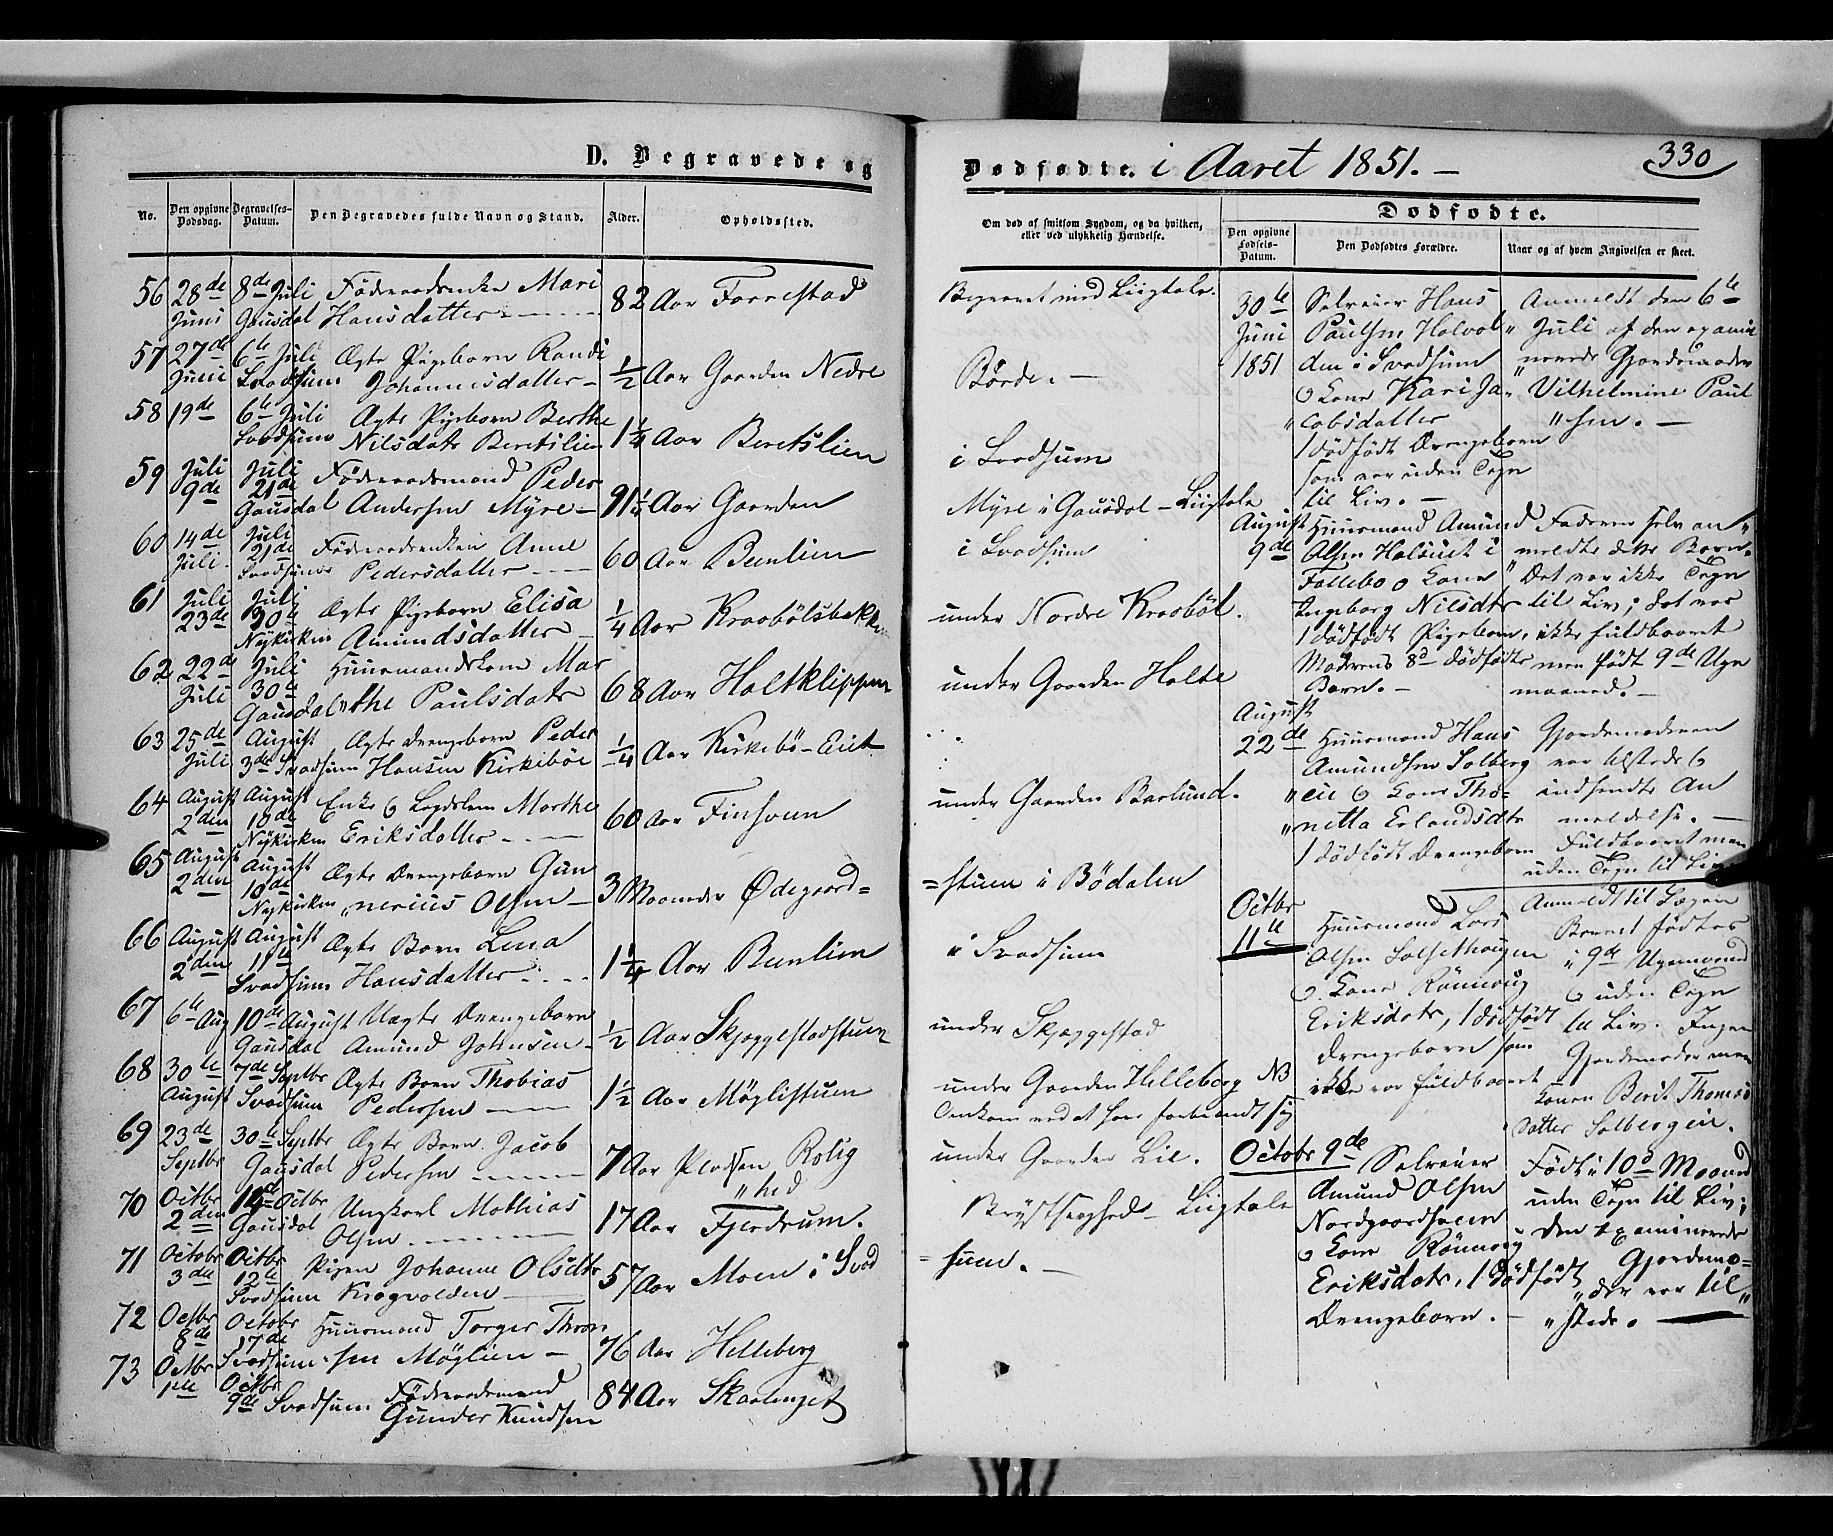 D. Begravede og
Dødfødte. i Aaret 1851. —
330
No.
Den opgivne Dødsdag.
Begravelses-Datum.
Den Begravedes fulde Navn og Stand.
Alder.
Opholdssted.
Om død af smitsom Sygdom, og da hvilken,
eller ved ulykkelig Hændelse.
Dødfødte.
Den opgivne Fødsels-Datum.
Den Dødfødtes Forældre.
Naar og af hvem Angivelsen er skeet.
56 28de Juni 8de Juli Gausdal Föderaadsenke Mari
Hansdatter 82 Aar Forrestad Begravet med Liigtale.
57 27de Juni 6te Juli Svadsum Ægte Pigebarn Randi
Johannisdatter — 1/2 Aar Gaarden Nedre Børde. —
58 19de 6te Juli Svadsum Ægte Pigebarn Berthe
Nilsdatr Beretslien 1 1/4 Aar Beretslien i Svadsum
59 Juli 9de Juli 21de Gausdal Föderaadsmand Peder
Andersen Myre — 91 1/4 Aar Gaarden Myre i Gausdal — Liigtale
60 14de Juli. Juli 21de Svadsum Föderaadsenken Anne
Pedersdatter 60 Aar Bunlien i Svadsum
61 Juli 23de Juli 30te Nykirken Ægte Pigebarn Elisa
Amundsdatter 1/4 Aar Kraabölsbakke under Nordre Kraaböl.
62 22de Juli Juli 30te Gausdal Huusmandskone Mar
"the Paulsdatr 68 Aar Holtklippen under Gaarden Holte
63 25de Juli August 3de Svadsum Ægte Drengebarn Peder
Hansen Kirkeböe 1/4 Aar Kirkebö-Eiet
64 August 2den August 10de Nykirken Enke o Lægdslem Marthe
Eriksdatter 60 Aar Finsveen under Gaarden Baelund.
65 August 2den August 10de Nykirken Ægte Drengebarn Gun
"nerius Olsen — 3 Maaneder Ødegaard=
=stuen i Bödalen
66 August 2den August 11te Svadsum Ægte Barn Lena
Hansdatter 1 1/4 Aar Bunlien i Svadsum
67 6te Aug 10de August Gausdal Uægte Drengebarn
Amund Johnsen 1/2 Aar Skjæggestadstuen under Skjæggestad
68 30te August 7de Septbr Svadsum Ægte Barn Thobias
Pedersen 1 1/2 Aar Möglistuen under Gaarden Helleberg NB
Omkom ved at have forbrændt sig
69 23de Septbr 30te Septbr Gausdal Ægte Barn Jacob
Pedersen 7 Aar Pladsen Rolig
"hed under Gaarden Lie.
70 Octbr 2den Octbr Gausdal Ungkarl Mathias
Olsen 17 Aar Fjerdrum. Brystsvaghed — Liigtale
71 Octobr 3die Octbr 12te Svadsum Pigen Johanne Olsdtr
Kragvolden 57 Aar Moen i Svad
=sum. —
72 Octbr 8de Octobr 17de Svadsum Huusmand Torger Thron
"sen Möglien — 76 Aar Helleberg
73 Octbr 1ste Octbr 9de Svadsum Föderaadsmand
Gunder Knudsen 84 Aar Skaalenget
30te
Juni
1851
Selveier Hans
Paulsen Holvol "
den i Svadsum
o Kone Kari Ja "
"cobsdatter
1 dödfödt Drengebarn
som var uden Tegn
til Liv. —
Anmeldt den 6te
Juli af den exami
"nerede Gjordemoder
Vilhelmine Paul
"sen. —
August
9de
Huusmand Amund
Olsen Holsvet i
Follebo o Kone
Ingeborg Nilsdtr
1 dödfödt Pigebarn,
Moderens 8de dödfödte
Barn. —
Faderen selv an "
meldte dette Barn.
Det var ikke Tegn
til Liv; det var
ikke fuldbaaret
men födt 9de Uge
maaned. —
August
22de
Huusmand Hans
Amundsen Solberg
"eie o Kone Tho=
"netta Erlandsdtr
1 dödfödt Drengebarn
Gjordemoderen
var tilstede o
indsendte An
meldelse. —
Fuldbaaret men
uden Tegn til Liv.
Octbr
11te
Huusmand Lars
Olsen Solsethougen
o. Kone Rönnoug
Eriksdatr, 1 dödfödt
Drengebarn som
ikke var fuldbaaret
Anmeldt til Lægen
Barnet födtes
i 9de Ugemaaned
o uden Tegn
til Liv. Ingen
Gjordemoder men
Konen Berit Thomas
datter Solbergeie.
Octobr 9de
Selveier
Amund Olsen
Nordgaardsveen
o Kone Rönnoug
Eriksdatr, 1 dödfödt
Drengebarn. —
Födt i 10de Maaned
uden Tegn til Liv;
den examinerede
Gjordemo=
"der var til "
"stede. —